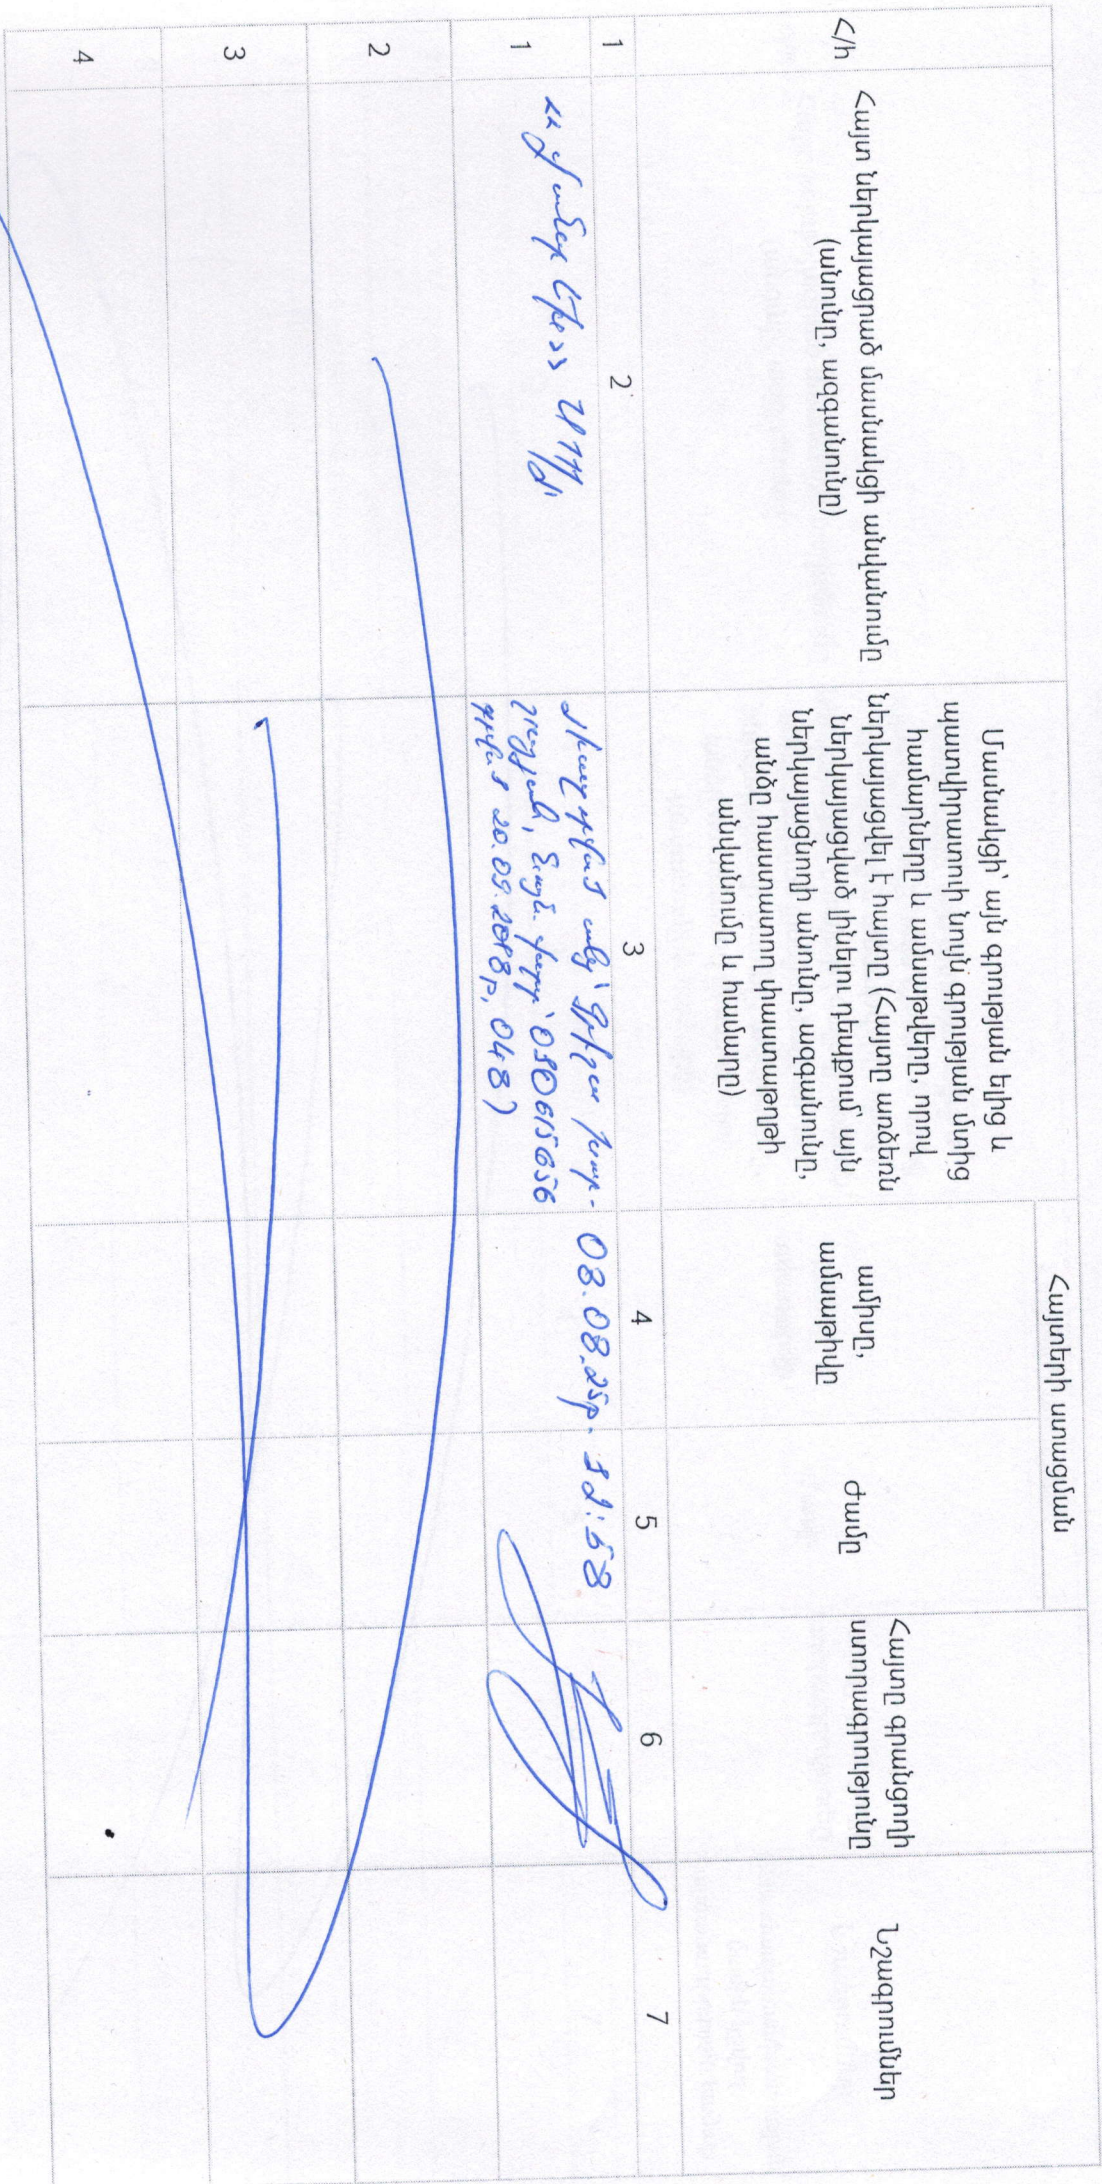 Հայտերի ստացման
Հ/հ
Հայտ ներկայացրած մասնակցի անվանումը
(անունը, ազգանունը)
Մասնակցի՝ այն գրության ելից և
պատվիրատուի նույն գրության մտից
համարները և ամսաթվերը, որով
ներկայացվել է հայտը (Հայտը առձեռն
ներկայացված լինելու դեպքում՝ այն
ներկայացնողի անունը, ազգանունը,
անձը հաստատող փաստաթղթի
անվանումը և համարը)
ամիսը,
ամսաթիվը
ժամը
Հայտը գրանցողի
ստորագրությունը
Նշագրումներ
1 2 3 4 5 6 7
1
ՍՊԸ
03.08.25թ. 12:58
030615656
20.09.2018թ, 048)
2
3
4